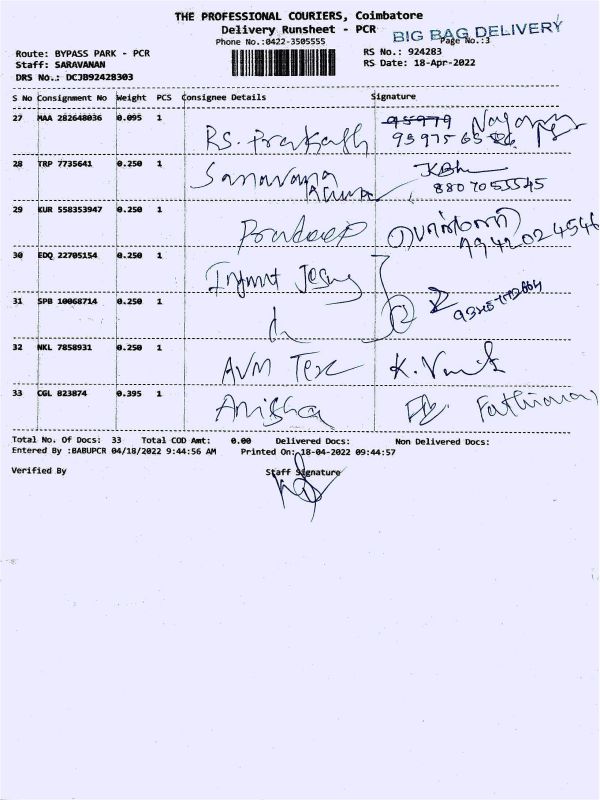 THE PROFESSIONAL COURIERS, Coimbatore
Delivery Runsheet - PCR
BIG BAG DELIVERY
Phone No.:0422-3505555
Page No.:3
Route: BYPASS PARK - PCR
RS No.: 924283
Staff: SARAVANAN
RS Date: 18-Apr-2022
DRS No.: DCJB92428303
S No Consignment No Weight PCS Consignee Details Signature
27 MAA 282648036 0.095 1 RS. Prakash
28 TRP 7735641 0.250 1 Saravana 8807055545
29 KUR 558353947 0.250 1 Pradeep
30 EDQ 22705154 0.250 1 Infant Jesus
31 SPB 10068714 0.250 1
32 NKL 7858931 0.250 1 AVM Tex
33 CGL 823874 0.395 1 Anisha Fathima
Total No. Of Docs: 33 Total COD Amt: 0.00 Delivered Docs: Non Delivered Docs:
Entered By :BABUPCR 04/18/2022 9:44:56 AM Printed On: 18-04-2022 09:44:57
Verified By Staff Signature